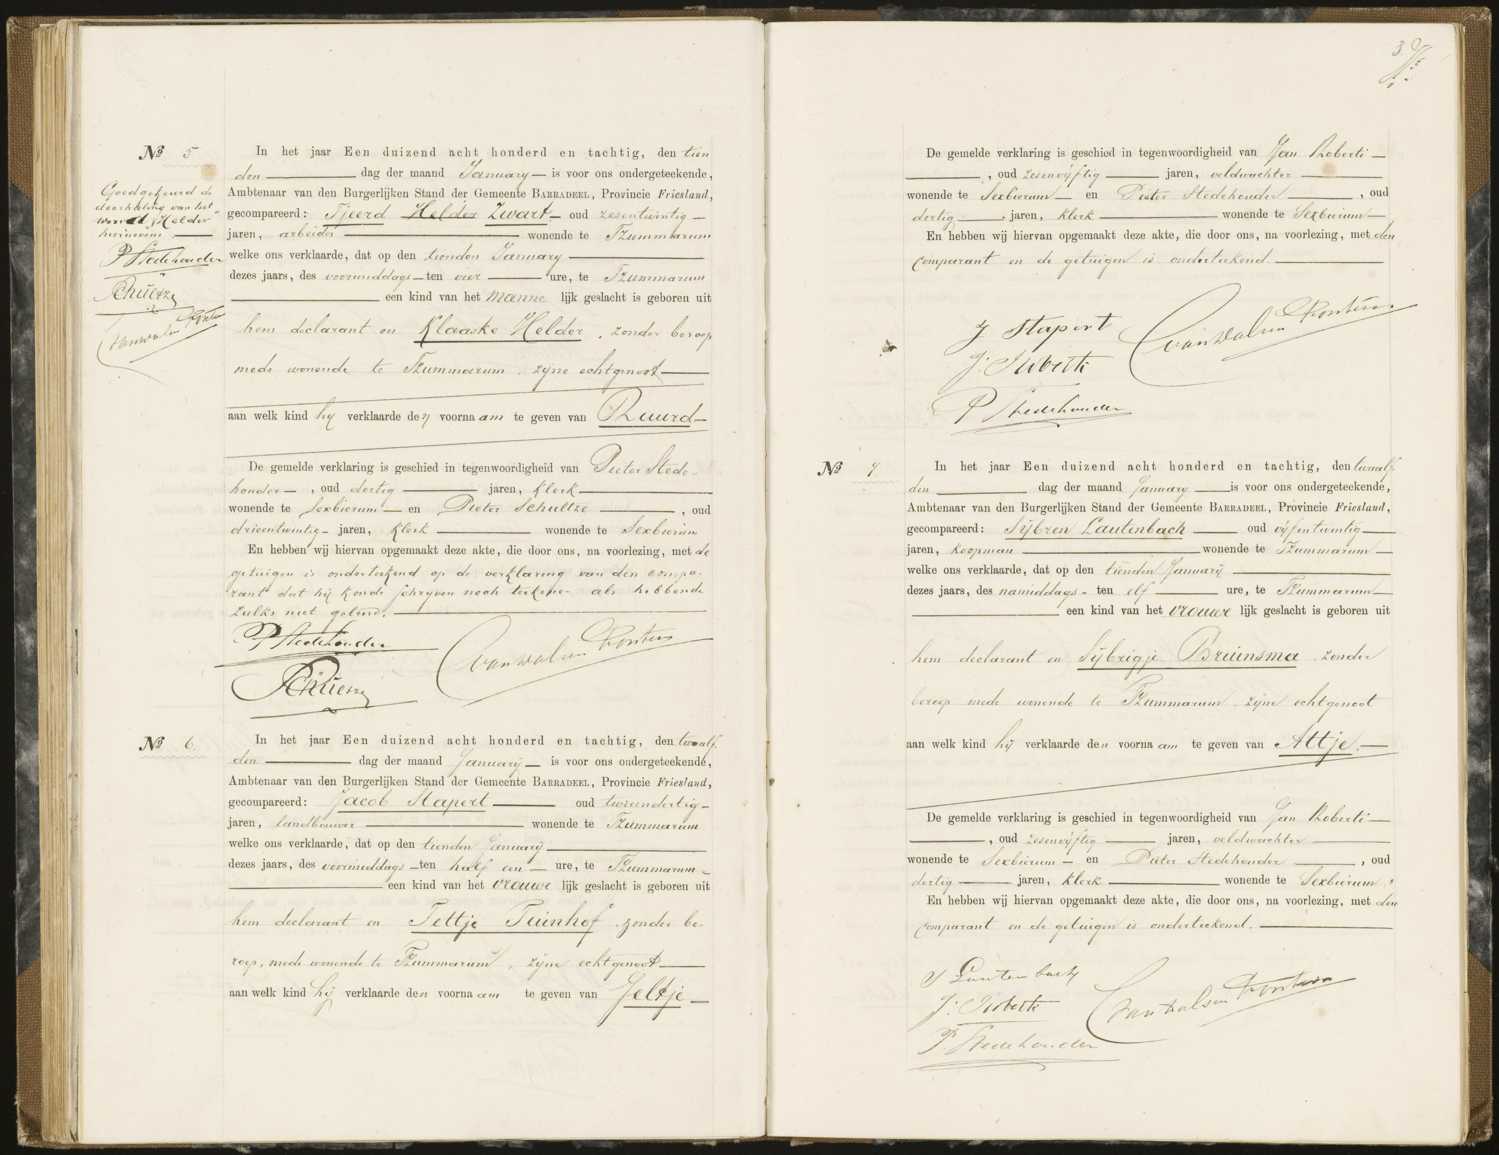 No 5
Goedgekeurd de
doorhaling van het
woord "Helder"
hierneven
P Stedehouder
PSchultze
C van Walsen Ronters
In het jaar Een duizend acht honderd en tachtig, den tien
den dag der maand January is voor ons ondergeteekende,
Ambtenaar van den Burgerlijken Stand der Gemeente BARRADEEL, Provincie Friesland,
gecompareerd: Tjeerd Helder Zwart oud zesentwintig
jaren, arbeider wonende te Tzummarum
welke ons verklaarde, dat op den tienden January
dezes jaars, des voormiddags ten vier ure, te Tzummarum
een kind van het manne lijk geslacht is geboren uit
hem declarant en Klaaske Helder, zonder beroep
mede wonende te Tzummarum, zijne echtgenoot
aan welk kind hij verklaarde den voornaam te geven van Ruurd
De gemelde verklaring is geschied in tegenwoordigheid van Pieter Stede-
houder, oud dertig jaren, klerk
wonende te Sexbierum en Pieter Schultze, oud
drieentwintig jaren, klerk wonende te Sexbierum
En hebben wij hiervan opgemaakt deze akte, die door ons, na voorlezing, met de
getuigen is onderteekend op de verklaring van den compa-
rant dat hij konde schrijven noch teekenen als hebbende
zulks niet geleerd.
P Stedehouder
C van Walsen
PSchultze
No 6.
In het jaar Een duizend acht honderd en tachtig, den twaalf
den dag der maand January is voor ons ondergeteekende,
Ambtenaar van den Burgerlijken Stand der Gemeente BARRADEEL, Provincie Friesland,
gecompareerd: Jacob Stapert oud tweeendertig
jaren, landbouwer wonende te Tzummarum
welke ons verklaarde, dat op den tienden January
dezes jaars, des voormiddags ten half een ure, te Tzummarum
een kind van het vrouwe lijk geslacht is geboren uit
hem declarant en Tettje Tuinhof, zonder be-
roep, mede wonende te Tzummarum, zijne echtgenoot
aan welk kind hij verklaarde den voornaam te geven van Jeltje
3
De gemelde verklaring is geschied in tegenwoordigheid van Jan Roberti
, oud zesenvijftig jaren, veldwachter
wonende te Sexbierum en Pieter Stedehouder, oud
dertig jaren, klerk wonende te Sexbierum
En hebben wij hiervan opgemaakt deze akte, die door ons, na voorlezing, met den
comparant en de getuigen is onderteekend.
J Stapert
C van Walsen
J. Roberti
P Stedehouder
No 7
In het jaar Een duizend acht honderd en tachtig, den twaalf
den dag der maand January is voor ons ondergeteekende,
Ambtenaar van den Burgerlijken Stand der Gemeente BARRADEEL, Provincie Friesland,
gecompareerd: Sijbren Lautenbach oud vijfentwintig
jaren, koopman wonende te Tzummarum
welke ons verklaarde, dat op den tienden January
dezes jaars, des namiddags ten elf ure, te Tzummarum
een kind van het vrouwe lijk geslacht is geboren uit
hem declarant en Sijbrigje Bruinsma, zonder
beroep mede wonende te Tzummarum, zijne echtgenoot
aan welk kind hij verklaarde den voornaam te geven van Attje.
De gemelde verklaring is geschied in tegenwoordigheid van Jan Roberti
, oud zesenvijftig jaren, veldwachter
wonende te Sexbierum en Pieter Stedehouder, oud
dertig jaren, klerk wonende te Sexbierum,
En hebben wij hiervan opgemaakt deze akte, die door ons, na voorlezing, met den
comparant en de getuigen is onderteekend.
S Lautenbach
J. Roberti
C van Walsen
P Stedehouder